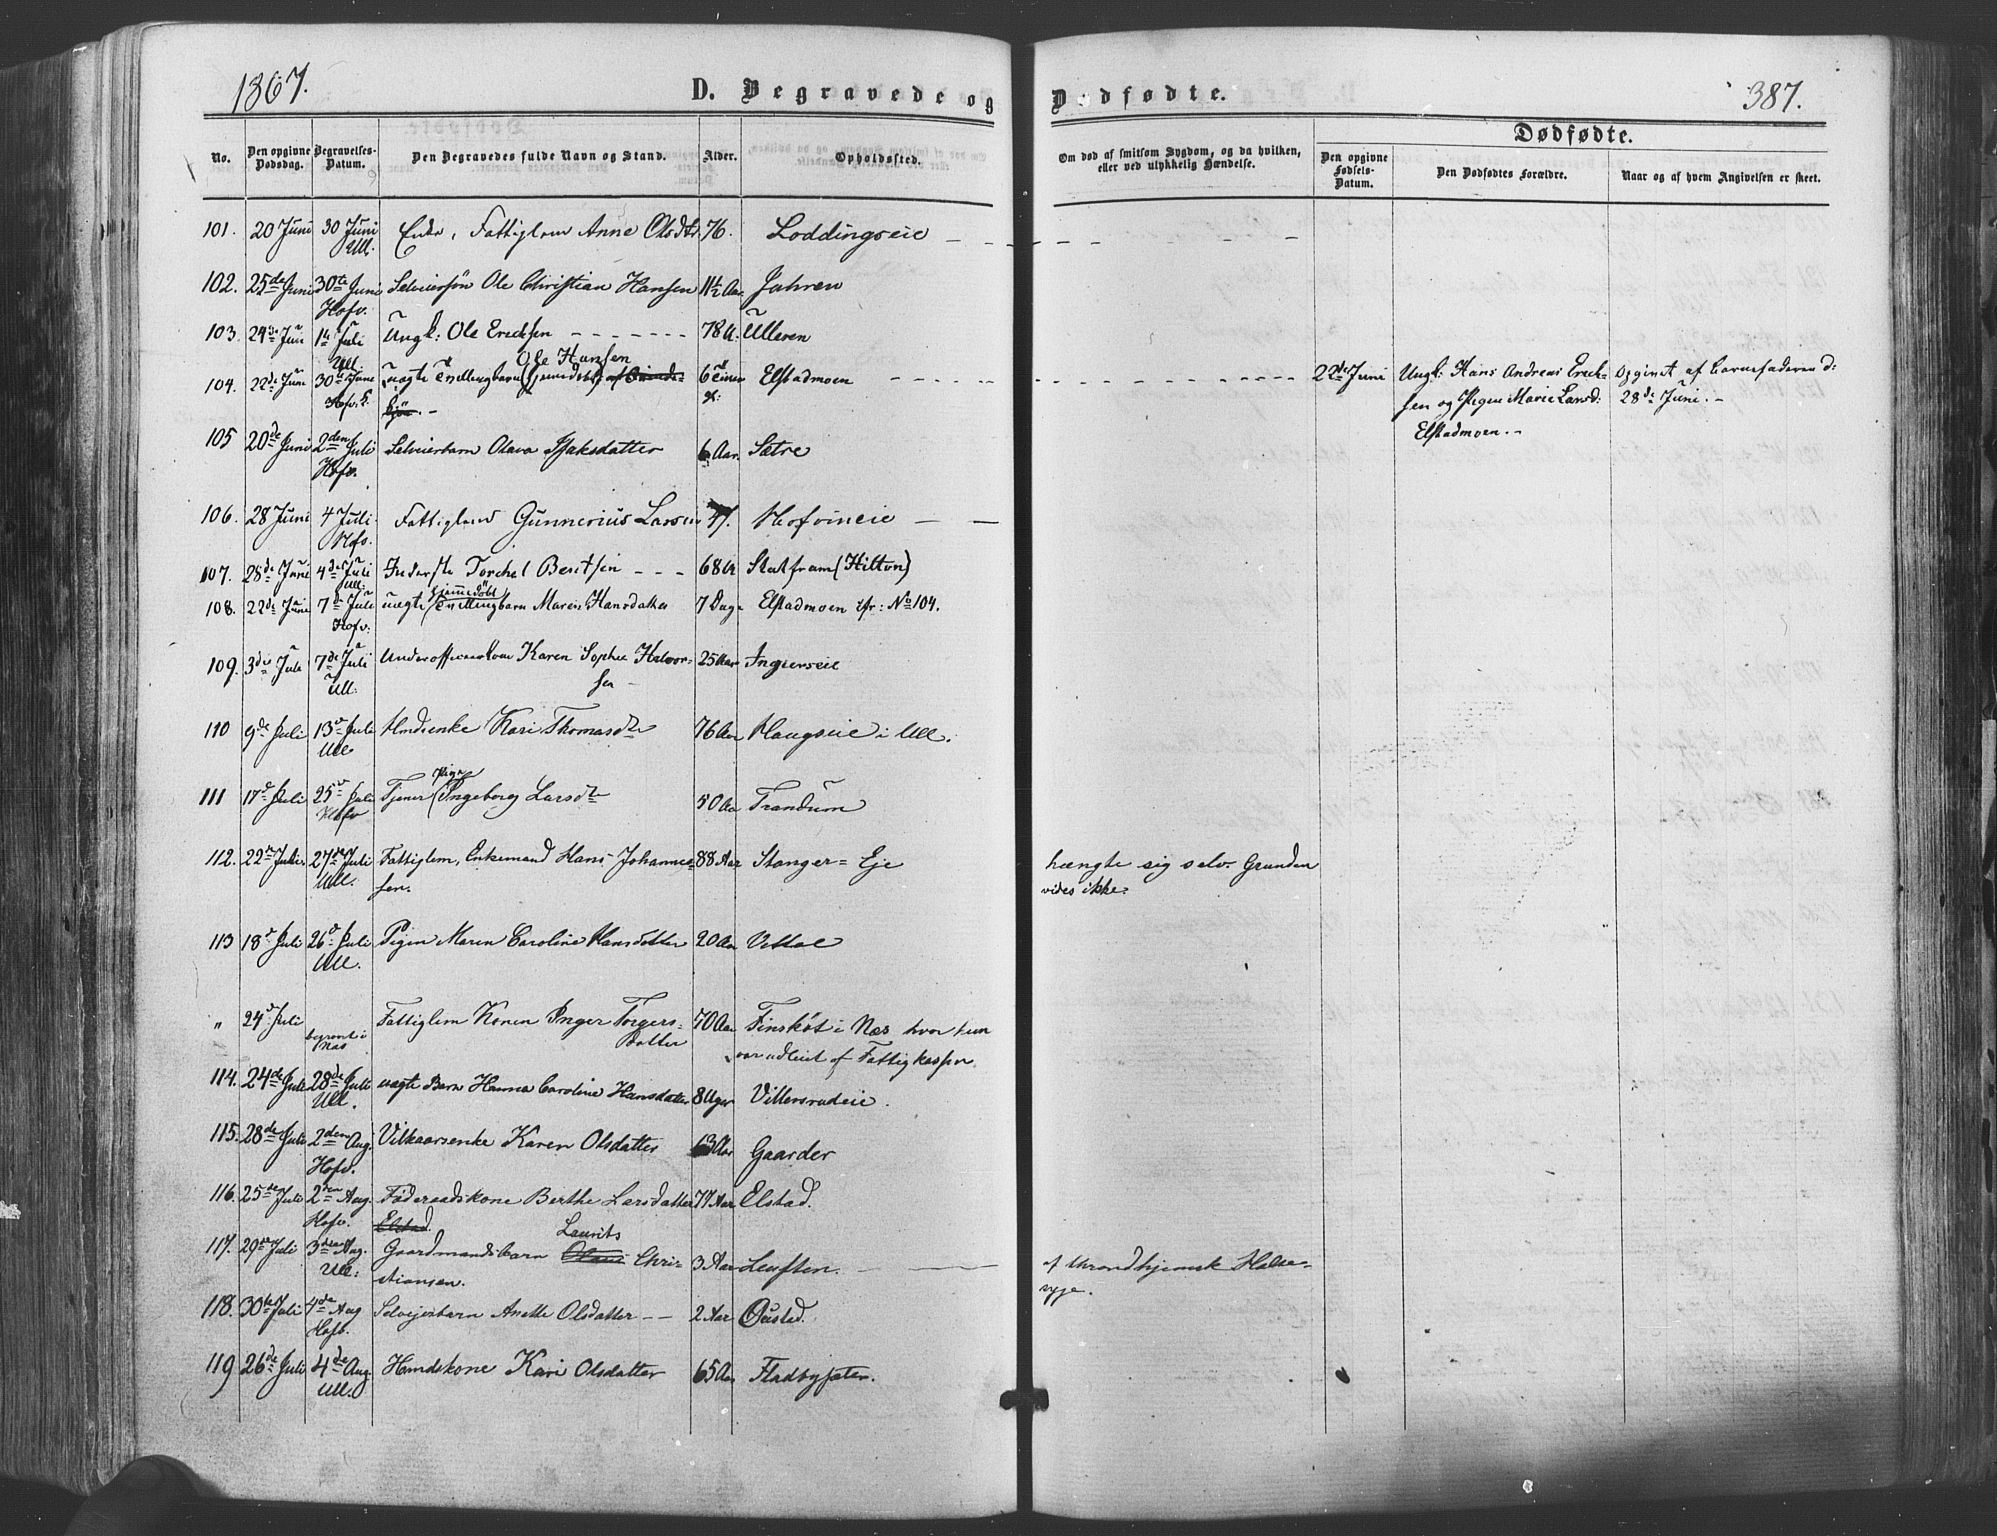 1867.
D. Begravede og Dødfødte.
387.
No.
Den opgivne Dødsdag.
Begravelses-Datum.
Den Begravedes fulde Navn og Stand.
Alder.
Opholdssted.
Om død af smitsom Sygdom, og da hvilken,
eller ved ulykkelig Hændelse.
Dødfødte.
Den opgivne Fødsels-Datum.
Den Dødfødtes Forældre.
Naar og af hvem Angivelsen er skeet.
101. 20 Juni 30 Juni Enke, Fattiglem Anne Olsdtr 76. Loddingseie
Ull.
102. 25de Juni 30te Juni Selveiersøn Ole Christian Hansen 11½ Aar Jahren
Hofv.
103. 24de Juni 1ste Juli Ungk: Ole Ericksen 78 A. Ulleren
Ull.
Ole Hansen
104. 22de Juni 30te Juni uægte Tvillingbarn (hjemmedøbt) af 6 Timer Elstadmoen 22de Juni Ungk: Hans Andreas Erick- Opgivet af Barnefaderen d:
Hofv. k. gl: sen og Pigen Marie Larsd: 28de Juni.
Elstadmoen.
105 20de Juni 2den Juli Selveierbarn Olava Isaksdatter 6 Aar. Sætre
Hofv.
106. 28 Juni 4 Juli Fattiglem Gunnerius Larsen 47. Hofvineie
Hofv.
107. 28de Juni 4de Juli Inderste Torchel Berntsen 68 A Statfram (Hilton)
Ull.
hjemmedøbt
108. 22de Juni 7de Juli uægte Tvillingbarn Maren Hansdatter 7 Dage Elstadmoen cfr: No 104.
Hofv:
109. 3die Juli 7de Juli Underofficerskone Karen Sophie Halvor- 25 Aar Angerseie
Ull. sen
110 9de Juli 13de Juli Huusmdsenke Kari Thomasdtr 76 Aar Haugseie i Ull.
Ull.
Pige
111 17de Juli 25de Juli Tjener Ingeborg Larsdtr 50 Aar Trandum
Hofv
112. 22de Juli 27de Juli Fattiglem, Enkemand Hans Johannes- 88 Aar Stanger-Eje hængte sig selv. Grunden
Ull. sen. vides ikke.
113 18de Juli 26de Juli Pigen Maren Caroline Hansdatter 20 Aar
Ull.
" 24de Juli Fattiglem Konen Inger Torgers- 70 Aar Finsköt i Næs hvor hun
begravet i Næs datter var udleiet af Fattigkassen
114. 24de Juli 28de Juli uægte Barn Hanna Caroline Hansdatter 8 Uger Villersrudeie.
Ull.
115. 28de Juli 2den Aug. Vilkaarsenke Karen Olsdatter 63 Aar Gaarder
Hofv.
116. 25de Juli 2den Aug. Føderaadskone Berthe Larsdatter 77 Aar Elstad.
Hofv. Elstad.
Laurits
117. 29de Juli 3die Aug. Gaardmandsbarn Chri- 3 Aar Leuften. af throndhjemsk Halse-
Ull: stiansen. syge.
118. 30te Juli 4de Aug Selvejerbarn Anette Olsdatter 2 Aar Øustad.
Hofv.
119 26de Juli 4de Aug. Huusmdskone Kari Olsdatter 65 Aar Fladbysæter.
Ull.